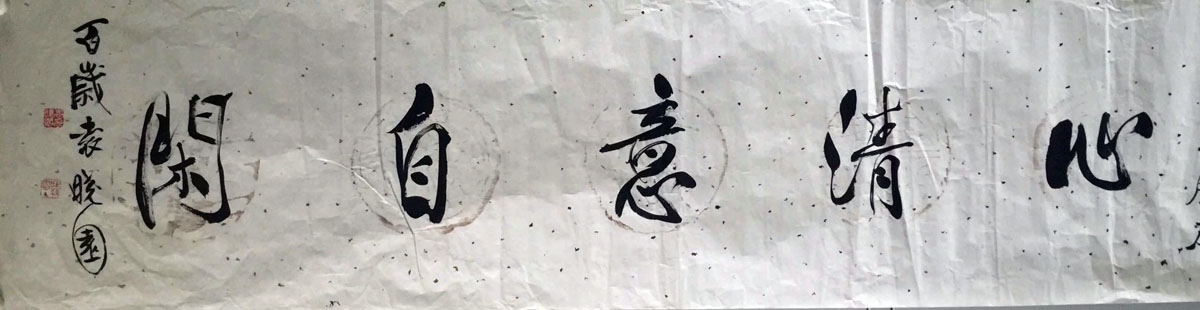 心清意自閑
百歲袁曉園